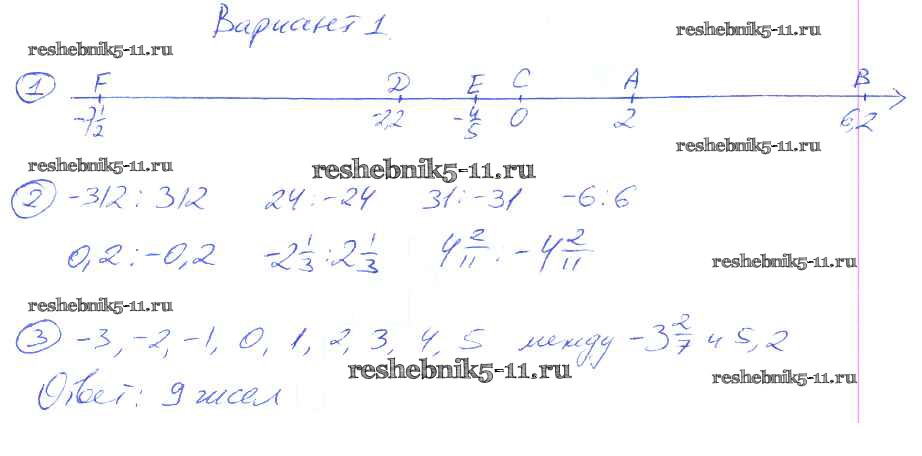 Вариант 1
reshebnik5-11.ru
reshebnik5-11.ru
1 F D E C A B
-7 1/2 -2,2 -4/5 0 2 6,2
reshebnik5-11.ru
reshebnik5-11.ru
reshebnik5-11.ru
2 -312 : 312 24 : -24 31 : -31 -6 : 6
0,2 : -0,2 -2 1/3 : 2 1/3 4 2/11 : -4 2/11
reshebnik5-11.ru
reshebnik5-11.ru
3 -3, -2, -1, 0, 1, 2, 3, 4, 5 между -3 2/7 и 5,2
reshebnik5-11.ru
reshebnik5-11.ru
Ответ: 9 чисел